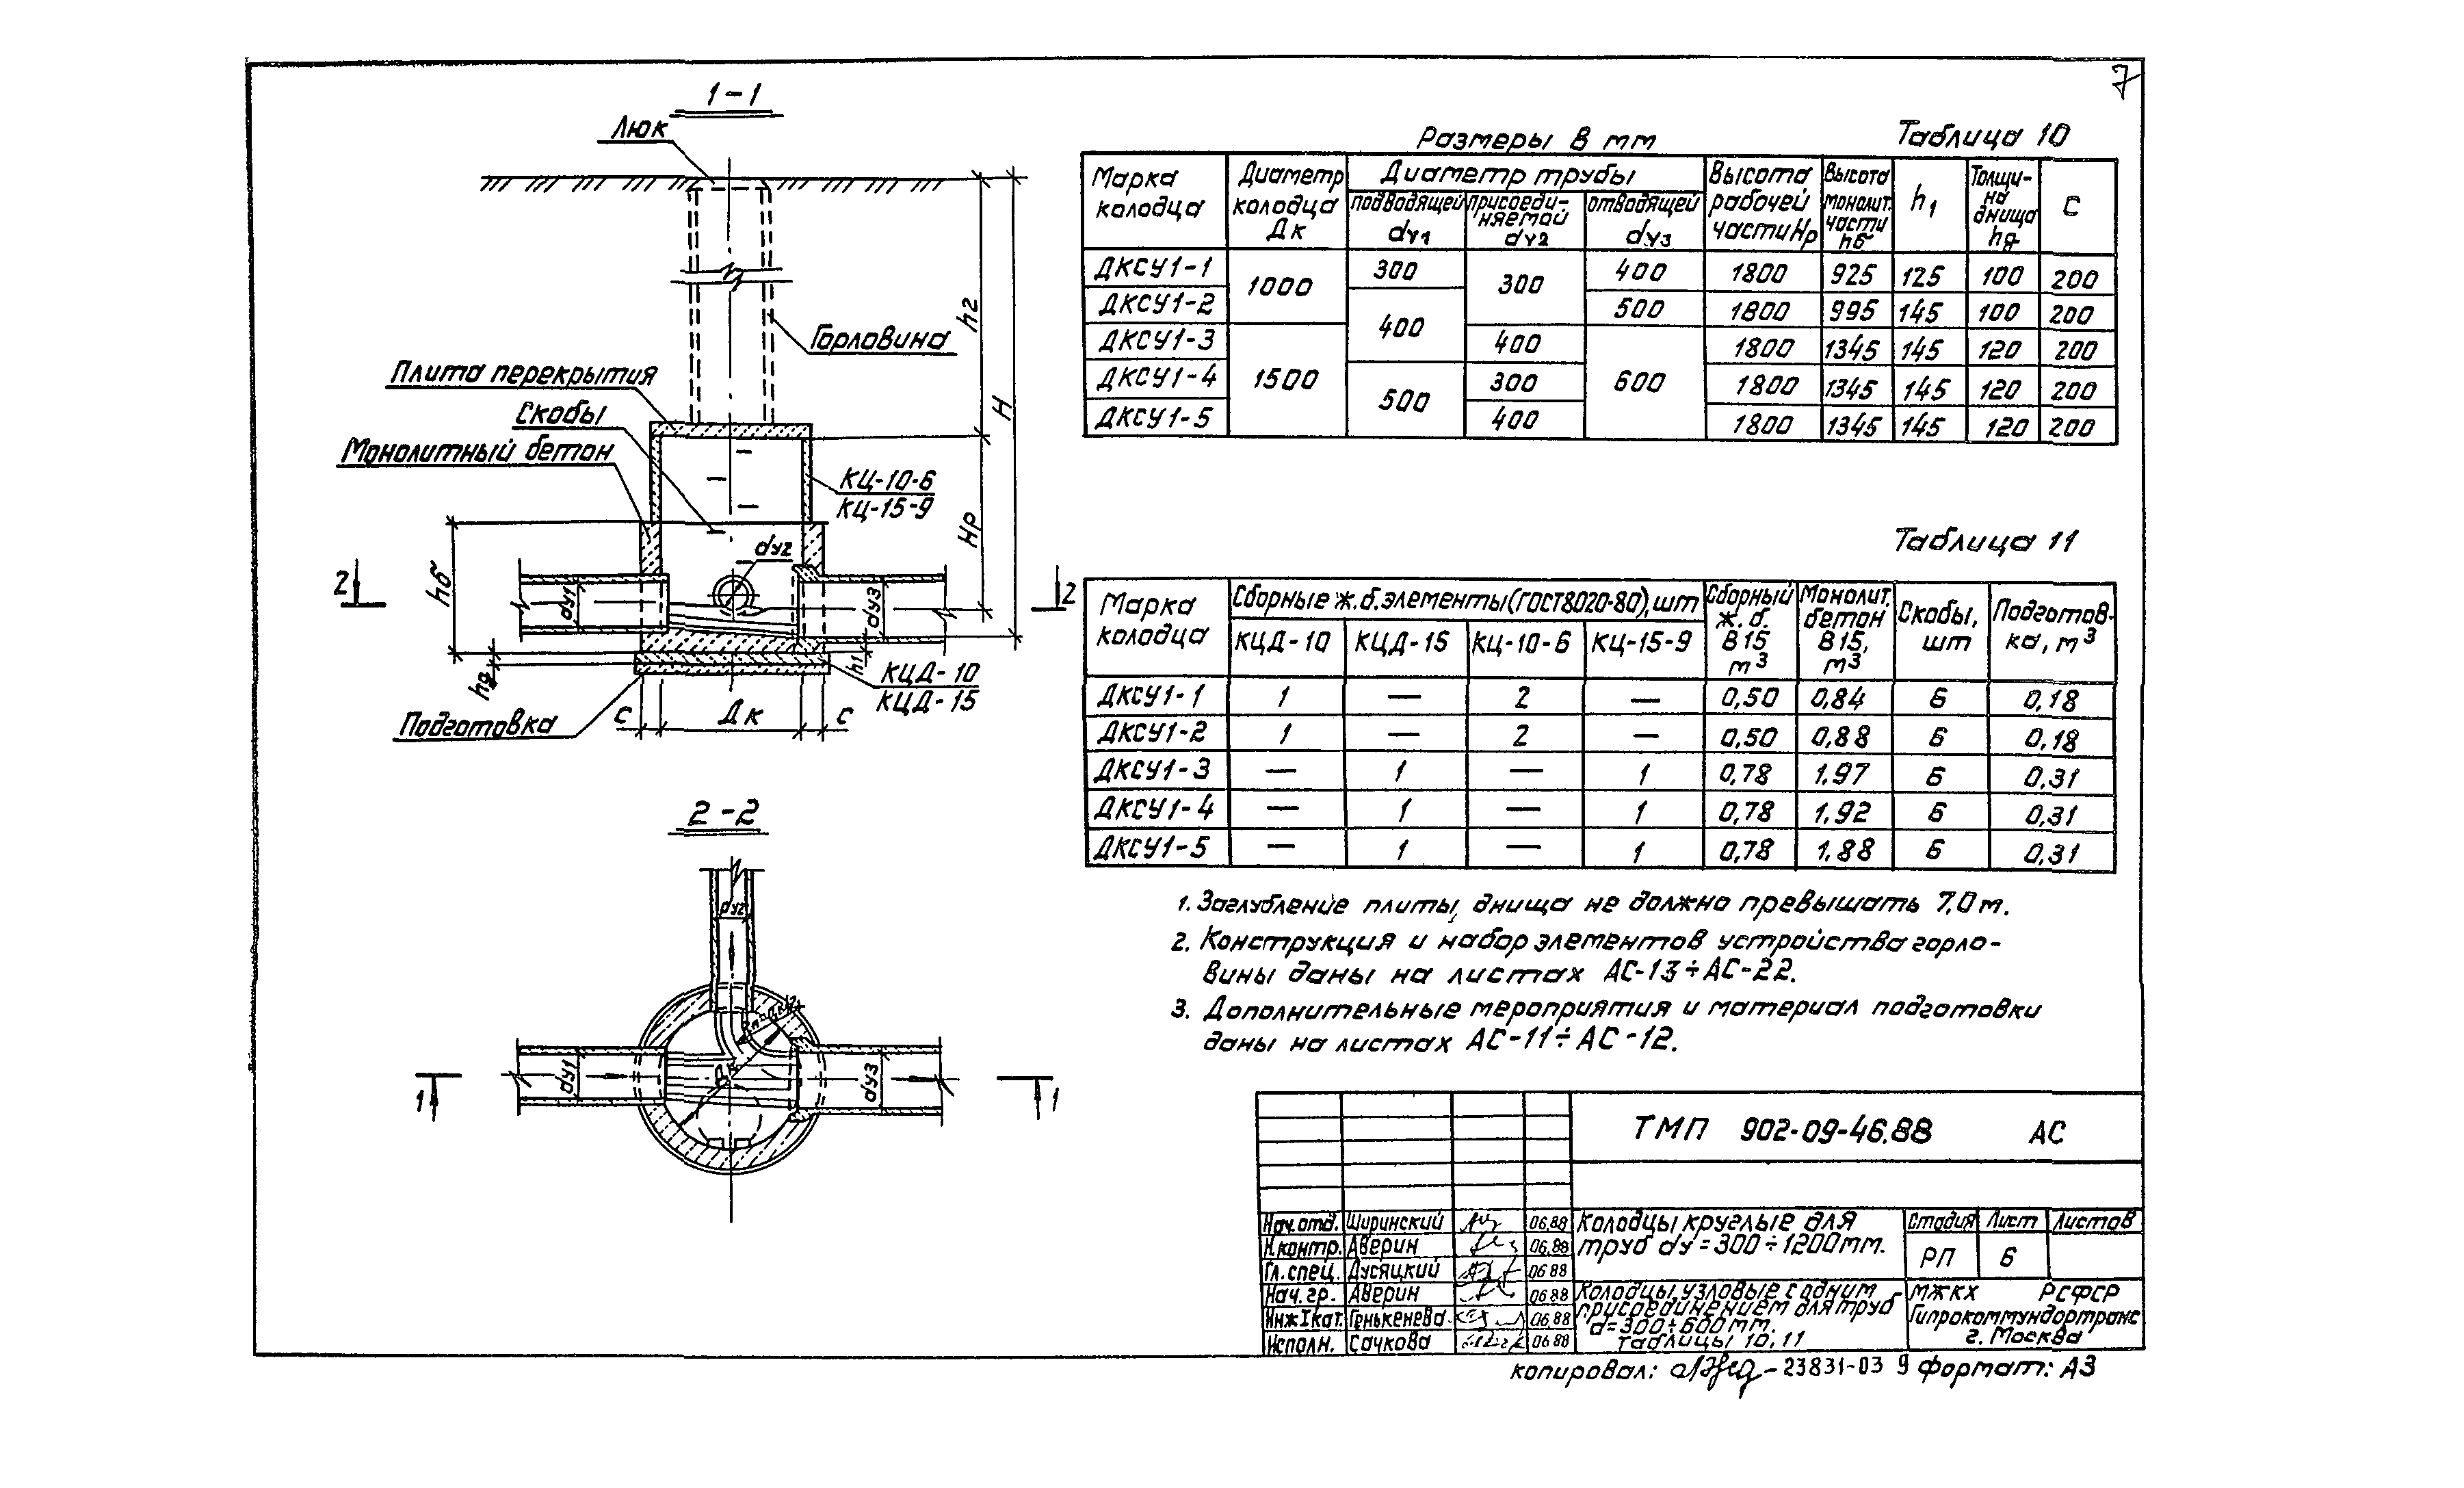 7
1-1
Люк
h2
H
Горловина
Плита перекрытия
Скобы
Монолитный бетон
КЦ-10-6
КЦ-15-9
Hр
hб
dу2
2
2
dу1
dу3
h1
hд
КЦД-10
КЦД-15
Подготовка
с Дк с
2-2
dу2
dу1
dу3
1
1
Размеры в мм Таблица 10
Марка колодца | Диаметр колодца Дк | Диаметр трубы | Высота рабочей части Hр | Высота монолит. части hб | h1 | Толщи-на днища hд | с
подводящей dу1 | присоеди-няемой dу2 | отводящей dу3
ДКСУ1-1 | 1000 | 300 | 300 | 400 | 1800 | 925 | 125 | 100 | 200
ДКСУ1-2 | 400 | 500 | 1800 | 995 | 145 | 100 | 200
ДКСУ1-3 | 1500 | 400 | 600 | 1800 | 1345 | 145 | 120 | 200
ДКСУ1-4 | 500 | 300 | 1800 | 1345 | 145 | 120 | 200
ДКСУ1-5 | 400 | 1800 | 1345 | 145 | 120 | 200
Таблица 11
Марка колодца | Сборные ж.б. элементы (ГОСТ8020-80), шт | Сборный ж.б. В15 м³ | Монолит. бетон В15, м³ | Скобы, шт | Подготов-ка, м³
КЦД-10 | КЦД-15 | КЦ-10-6 | КЦ-15-9
ДКСУ1-1 | 1 | — | 2 | — | 0,50 | 0,84 | 6 | 0,18
ДКСУ1-2 | 1 | — | 2 | — | 0,50 | 0,88 | 6 | 0,18
ДКСУ1-3 | — | 1 | — | 1 | 0,78 | 1.97 | 6 | 0,31
ДКСУ1-4 | — | 1 | — | 1 | 0,78 | 1.92 | 6 | 0,31
ДКСУ1-5 | — | 1 | — | 1 | 0,78 | 1.88 | 6 | 0,31
1. Заглубление плиты днища не должно превышать 7,0 м.
2. Конструкция и набор элементов устройства горло-
вины даны на листах АС-13÷АС-22.
3. Дополнительные мероприятия и материал подготовки
даны на листах АС-11÷АС-12.
ТМП 902-09-46.88 АС
Нач.отд. Ширинский 06.88
Н.контр. Аверин 06.88
Гл.спец. Дусяцкий 06 88
Нач.гр. Аверин 06.88
Инж I кат. Генькенева 06.88
Исполн. Сачкова 06 88
Колодцы круглые для
труб dу=300÷1200мм.
Стадия Лист Листов
РП 6
Колодцы узловые с одним
присоединением для труб
d=300÷600мм.
Таблицы 10, 11
МЖКХ РСФСР
Гипрокоммундортранс
г. Москва
копировал: -23831-03 9 формат: А3